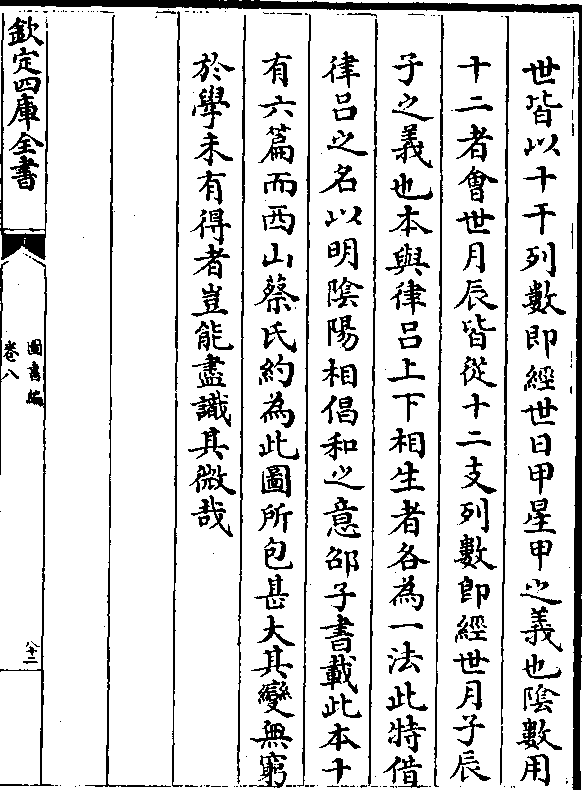 世皆以十干列數即經世日甲星甲之義也陰數用
十二者會世月辰皆從十二支列數即經世月子辰
子之義也本與律呂上下相生者各為一法此特借
律呂之名以明陰陽相倡和之意邵子書載此本十
有六篇而西山蔡氏約為此圖所包甚大其變無窮
於學未有得者豈能盡識其微哉
欽定四庫全書
圖書編
卷八
八十二